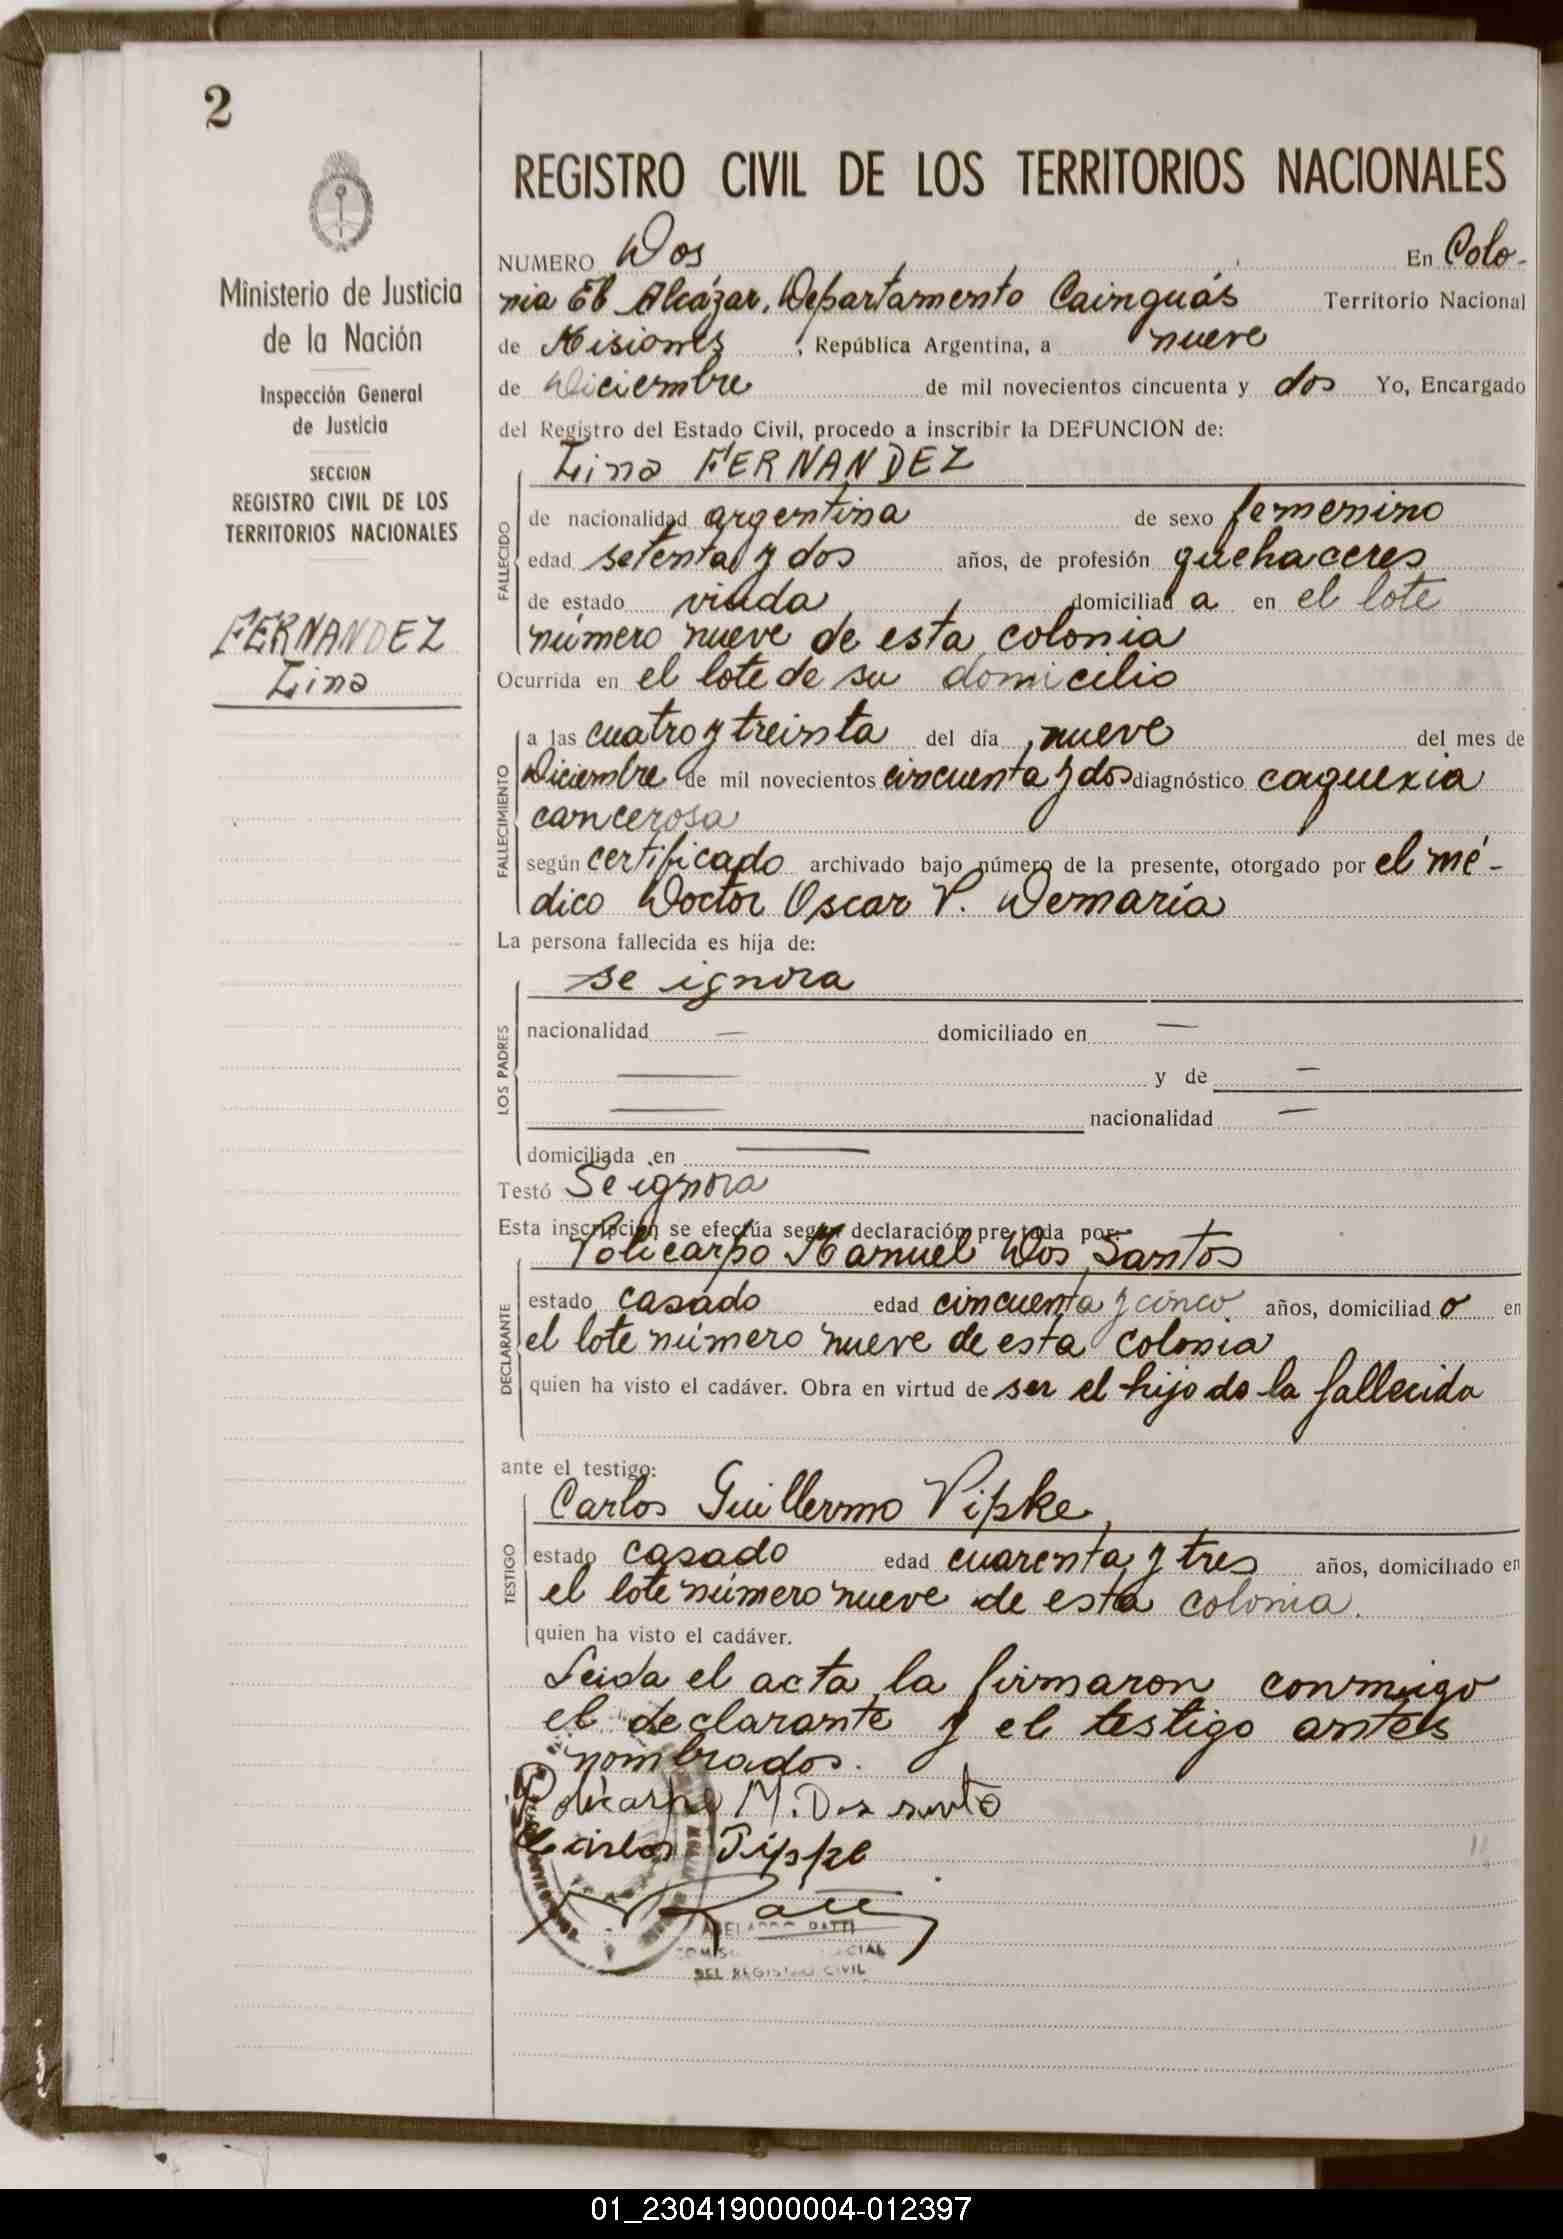 2
Ministerio de Justicia
de la Nación
Inspección General
de Justicia
SECCION
REGISTRO CIVIL DE LOS
TERRITORIOS NACIONALES
FERNANDEZ
Lina
REGISTRO CIVIL DE LOS TERRITORIOS NACIONALES
NUMERO Dos En Colo-
nia El Alcázar, Departamento Cainguás Territorio Nacional
de Misiones, República Argentina, a nueve
de Diciembre de mil novecientos cincuenta y dos Yo, Encargado
del Registro del Estado Civil, procedo a inscribir la DEFUNCION de:
Lina FERNANDEZ
FALLECIDO
de nacionalidad argentina de sexo femenino
edad setenta y dos años, de profesión quehaceres
de estado viuda domiciliad a en el lote
número nueve de esta colonia
Ocurrida en el lote de su domicilio
FALLECIMIENTO
a las cuatro y treinta del día nueve del mes de
Diciembre de mil novecientos cincuenta y dos diagnóstico caquexia
cancerosa
según certificado archivado bajo número de la presente, otorgado por el mé-
dico Doctor Oscar V. Demaría
La persona fallecida es hija de:
se ignora
LOS PADRES
nacionalidad — domiciliado en —
— y de —
— nacionalidad —
domiciliada en —
Testó Se ignora
Esta inscripción se efectúa según declaración prestada por:
Policarpo Manuel Dos Santos
DECLARANTE
estado casado edad cincuenta y cinco años, domiciliad o en
el lote número nueve de esta colonia
quien ha visto el cadáver. Obra en virtud de ser el hijo de la fallecida
ante el testigo:
Carlos Guillermo Pipke,
TESTIGO
estado casado edad cuarenta y tres años, domiciliado en
el lote número nueve de esta colonia.
quien ha visto el cadáver.
Leida el acta, la firmaron conmigo
el declarante y el testigo antes
nombrados.
Policarpo M. Dos santo
Carlos Pipke
Ratti
ABELARDO RATTI
DEL REGISTRO CIVIL
01_230419000004-012397